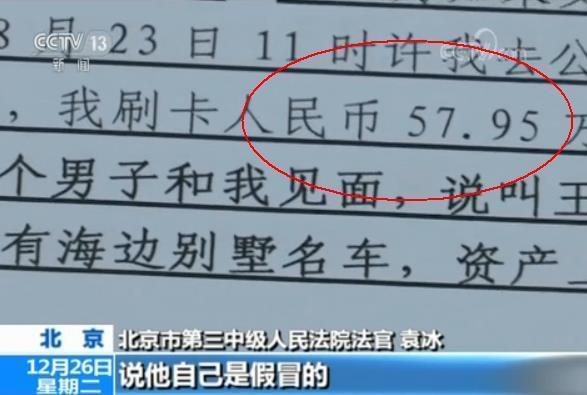 CCTV 13
新闻
CCTV.com
8月23日11时许我去公
，我刷卡人民币57.95万
个男子和我见面，说叫王
有海边别墅名车，资产
北京
北京市第三中级人民法院法官 袁冰
12月26日
星期二
说他自己是假冒的